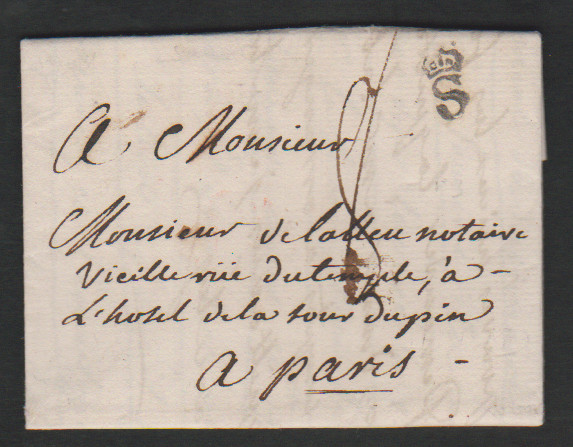 A Monsieur
Monsieur delalleu notaire
Vieille rüe dutemple, à -
L'hosel dela tour dupin
a paris -
8
S